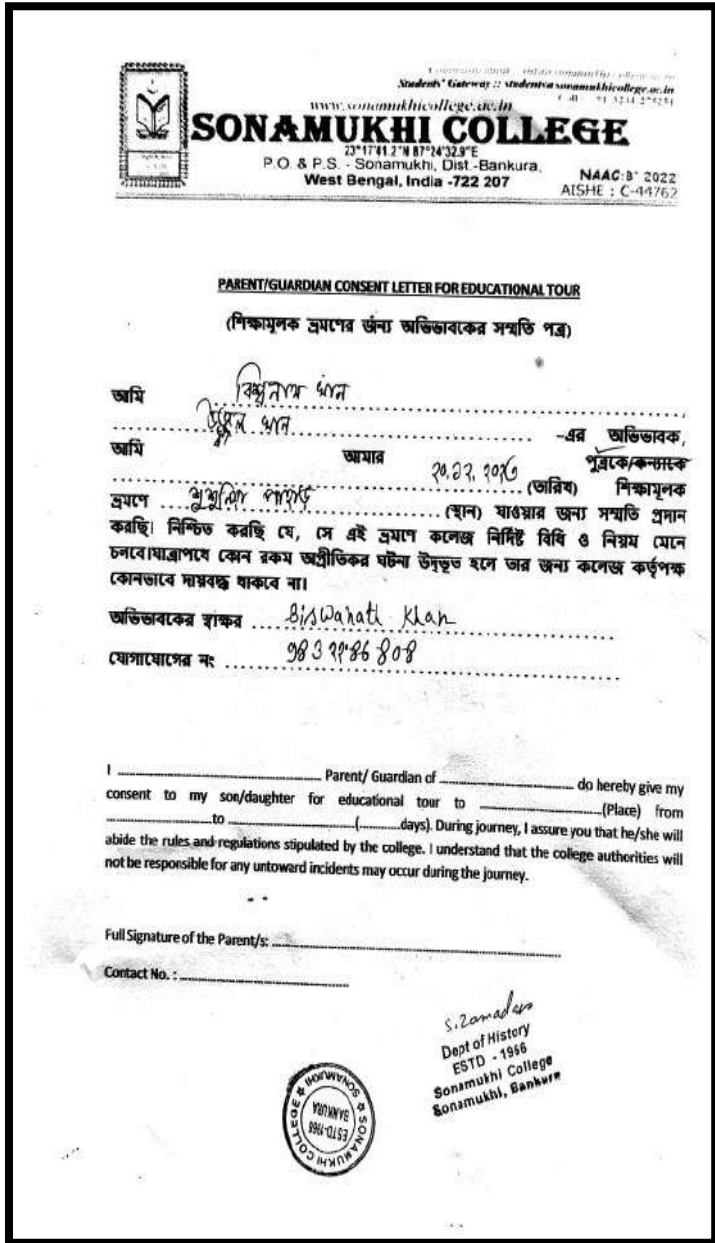 Students' Gateway :: students@sonamukhicollege.ac.in
www.sonamukhicollege.ac.in
SONAMUKHI COLLEGE
23°17'41.2"N 87°24'32.9"E
P.O. & P.S. - Sonamukhi, Dist.-Bankura,
West Bengal, India -722 207
NAAC:B+ 2022
AISHE : C-44762
PARENT/GUARDIAN CONSENT LETTER FOR EDUCATIONAL TOUR
(শিক্ষামূলক ভ্রমণের জন্য অভিভাবকের সম্মতি পত্র)
আমি বিশ্বনাথ খান
খান -এর অভিভাবক,
আমি আমার পুত্রকে/কন্যাকে
(তারিখ) শিক্ষামূলক
ভ্রমণে শুশুনিয়া পাহাড় (স্থান) যাওয়ার জন্য সম্মতি প্রদান
করছি। নিশ্চিত করছি যে, সে এই ভ্রমণে কলেজ নির্দিষ্ট বিধি ও নিয়ম মেনে
চলবে।যাত্রাপথে কোন রকম অপ্রীতিকর ঘটনা উদ্ভূত হলে তার জন্য কলেজ কর্তৃপক্ষ
কোনভাবে দায়বদ্ধ থাকবে না।
অভিভাবকের স্বাক্ষর Biswanath Khan
যোগাযোগের নং
I ........ Parent/ Guardian of ........ do hereby give my
consent to my son/daughter for educational tour to ........(Place) from
........to ........(........days). During journey, I assure you that he/she will
abide the rules and regulations stipulated by the college. I understand that the college authorities will
not be responsible for any untoward incidents may occur during the journey.
Full Signature of the Parent/s: ........
Contact No. : ........
Dept of History
ESTD - 1966
Sonamukhi College
Sonamukhi, Bankura
SONAMUKHI COLLEGE ★ SONAMUKHI ★
ESTD-1966
BANKURA